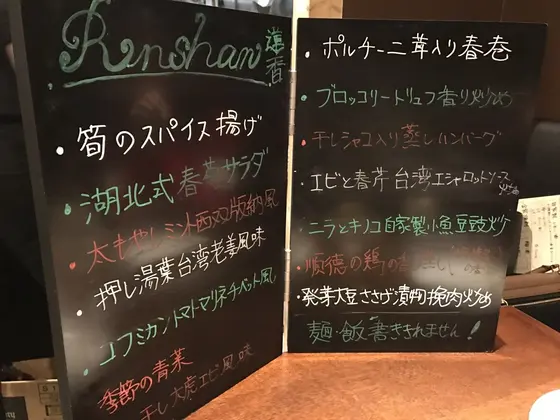 Renshan
蓮香
・筍のスパイス揚げ
・湖北式春菊サラダ
・太もやしミント西双版納風
・押し湯葉台湾老姜風味
・コフミカントマトマリネチベット風
・季節の青菜
干し大虎エビ風味
・ポルチーニ茸入り春巻
・ブロッコリートリュフ香り炒め
・干しシャコ入り蒸しハンバーグ
・エビと春芹台湾エシャロットソース炒め
・ニラとキノコ自家製小魚豆豉炒
・順徳の鶏の
・発芽大豆ささげ漬物挽肉炒め
麺・飯書きされません!